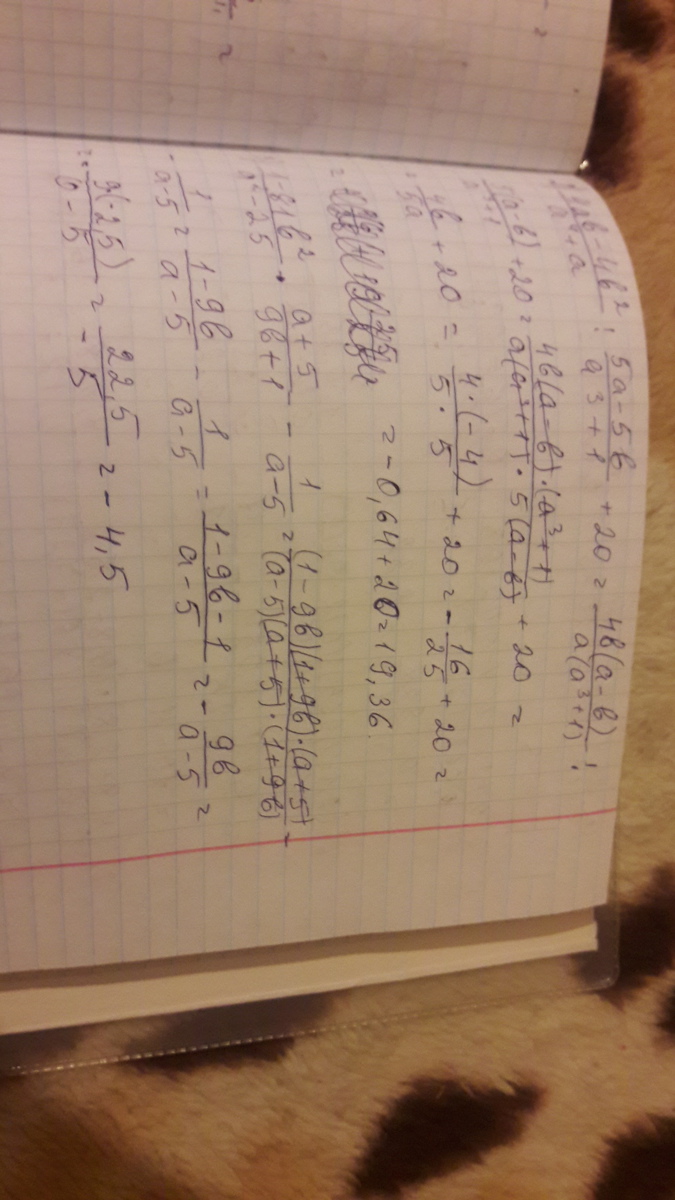 ab - 4b² / a⁴ + a : 5a - 5b / a³ + 1 + 20 = 4b(a - b) / a(a³ + 1) :
5(a - b) / a³ + 1 + 20 = 4b(a - b) · (a³ + 1) / a(a³ + 1) · 5(a - b) + 20 =
= 4b / 5a + 20 = 4 · (-4) / 5 · 5 + 20 = - 16 / 25 + 20 =
= - 0,64 + 20 = 19,36.
1 - 81b² / a² - 25 · a + 5 / 9b + 1 - 1 / a - 5 = (1 - 9b)(1 + 9b) · (a + 5) / (a - 5)(a + 5) · (1 + 9b) -
- 1 / a - 5 = 1 - 9b / a - 5 - 1 / a - 5 = 1 - 9b - 1 / a - 5 = - 9b / a - 5 =
= - 9(-2,5) / 0 - 5 = 22,5 / - 5 = - 4,5